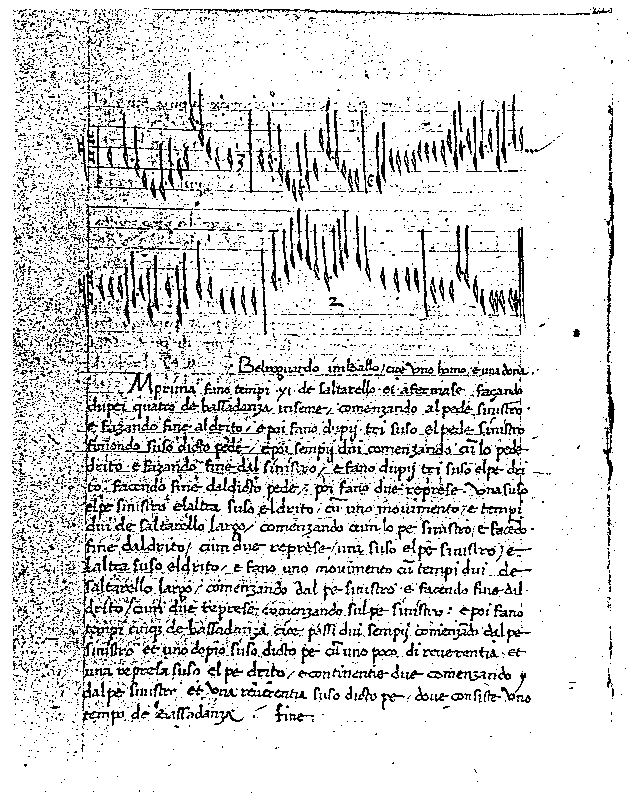 2
Belriguardo in ballo / cioe uno homo, e una dona.
In prima fano tempi vi de saltarello et afermase, façando
dupii quatro de bassadanza inseme / comenzando al pede sinistro
e fazando fine al drito / e poi fano dupij tri suso el pede sinistro
finiendo suso dicto pede / e poi sempij dui comenzando cũ lo pede
drito e fazando fine dal sinistro / e fano dupij tri suso el pe dri
to facendo fine dal dicto pede / poi fano due represe Una suso
el pe sinistro e l altra suso el drito / cũ uno movimento / e tempi
dui de saltarello largo / comenzando cum lo pe sinistro, e facẽdo
fine dal drito / cum due represe / una suso el pe sinistro / e
l altra suso el drito / e fano uno movimento cũ tempi dui de
saltarello largo / comenzando dal pe sinistro e facendo fine dal
dricto / cum due represe comenzando sul pe sinistro : e poi fano
tempi cinque de bassadanza cioe passi dui sempij comenzãdo dal pe
sinistro et uno dopio suso dicto pe cũ uno poco di reverentia et
una represa suso el pe drito / e continentie due comenzando
dal pe sinistro et una reverentia suso dicto pe / dove consiste uno
tempo de Bassadanza fine